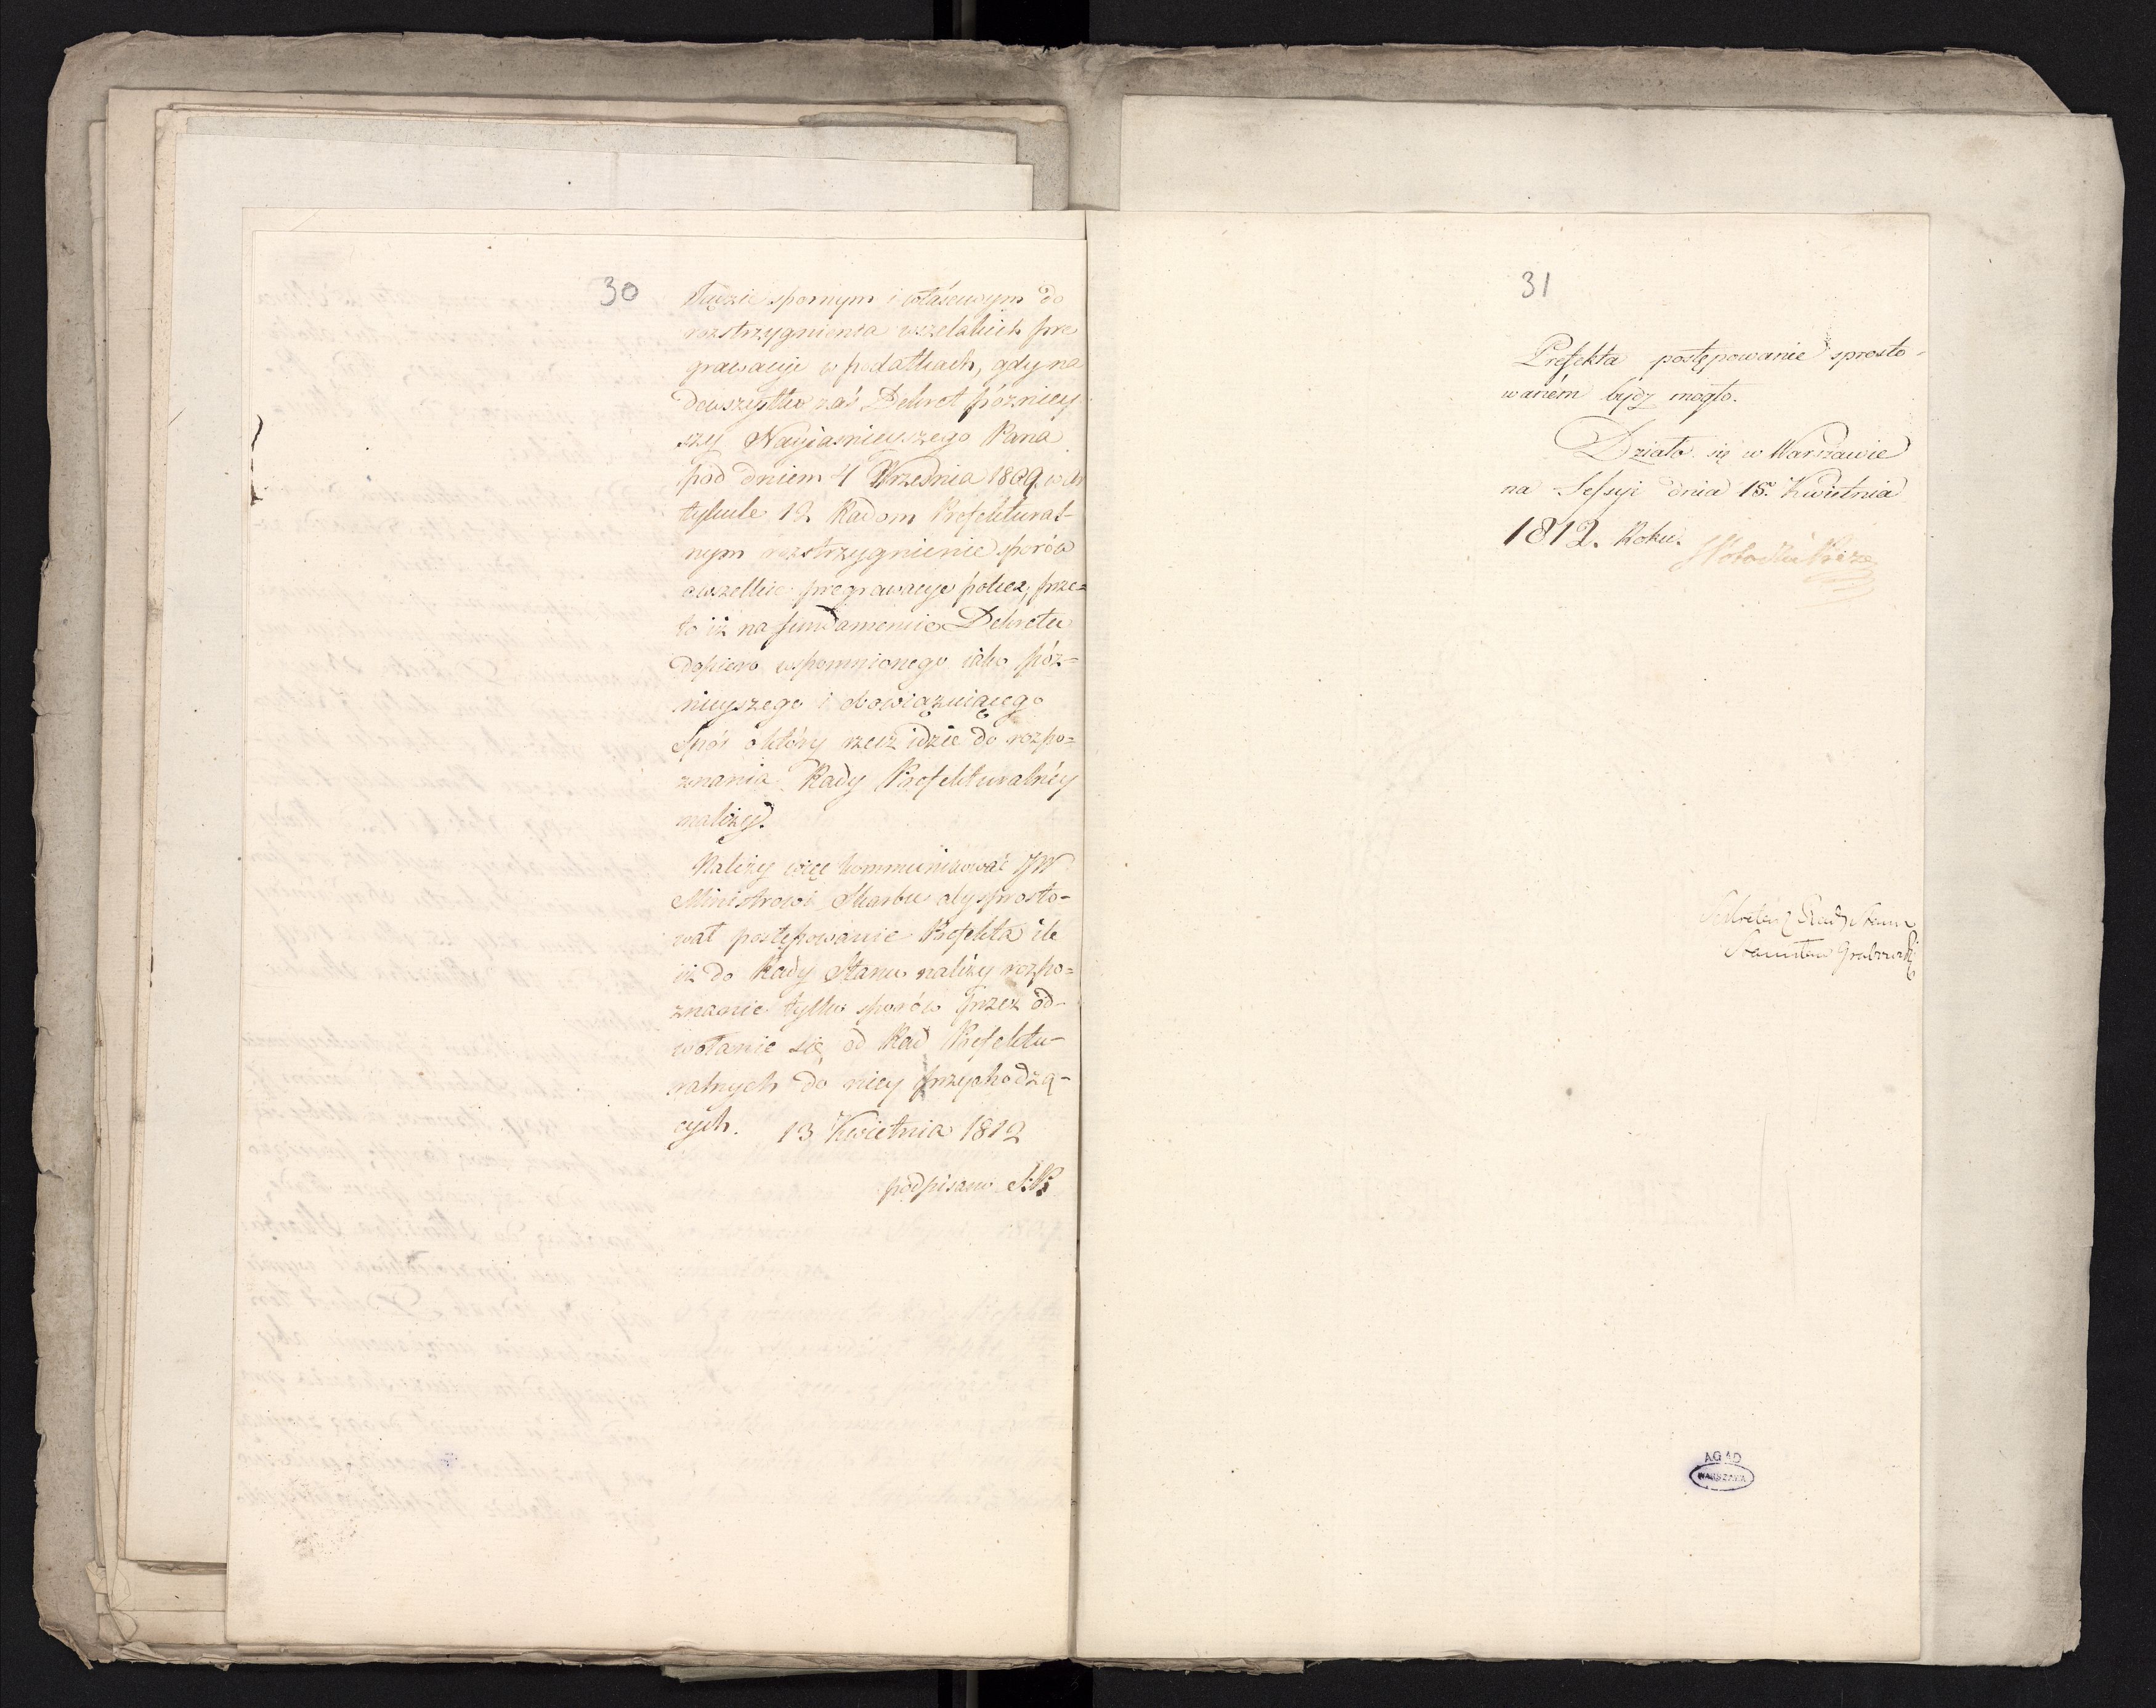 30
Sądzie spornym i właściwym do
rozstrzygnienia wszelakich pre
grawacyi w podatkach, gdy na
dewszystko zaś Dekret późniey
szy Nayiaśnieyszego Pana
pod dniem 4 Września 1809 w Ar
tykule 12 Radom Prefektural-
nym rozstrzygnienie sporów
o wszelkie pregrawacye poleca, prze=
to iż na fundamencie Dekretu
dopiero wspomnionego iako póź=
nieyszego i obowiązuiącego
Spór o który rzecz idzie do rozpo=
znania Rady Prefekturalney
należy.
Należy więc kommunikować JW
Ministrowi Skarbu aby sprosto-
wał postępowanie Prefekta ile
iż do Rady Stanu należy rozpo=
znanie tylko sporów przez od-
wołanie się od Rad Prefektu-
ralnych do niey przychodzą-
cych. 13 Kwietnia 1812
podpisano
31
Prefekta postępowanie sprosto-
waném bydź mogło.
Działo się w Warszawie
na Sessyi dnia 18. Kwietnia
1812. Roku.
Sekretarz Rady Stanu
Stanisław Grabowski
AGAD
WARSZAWA